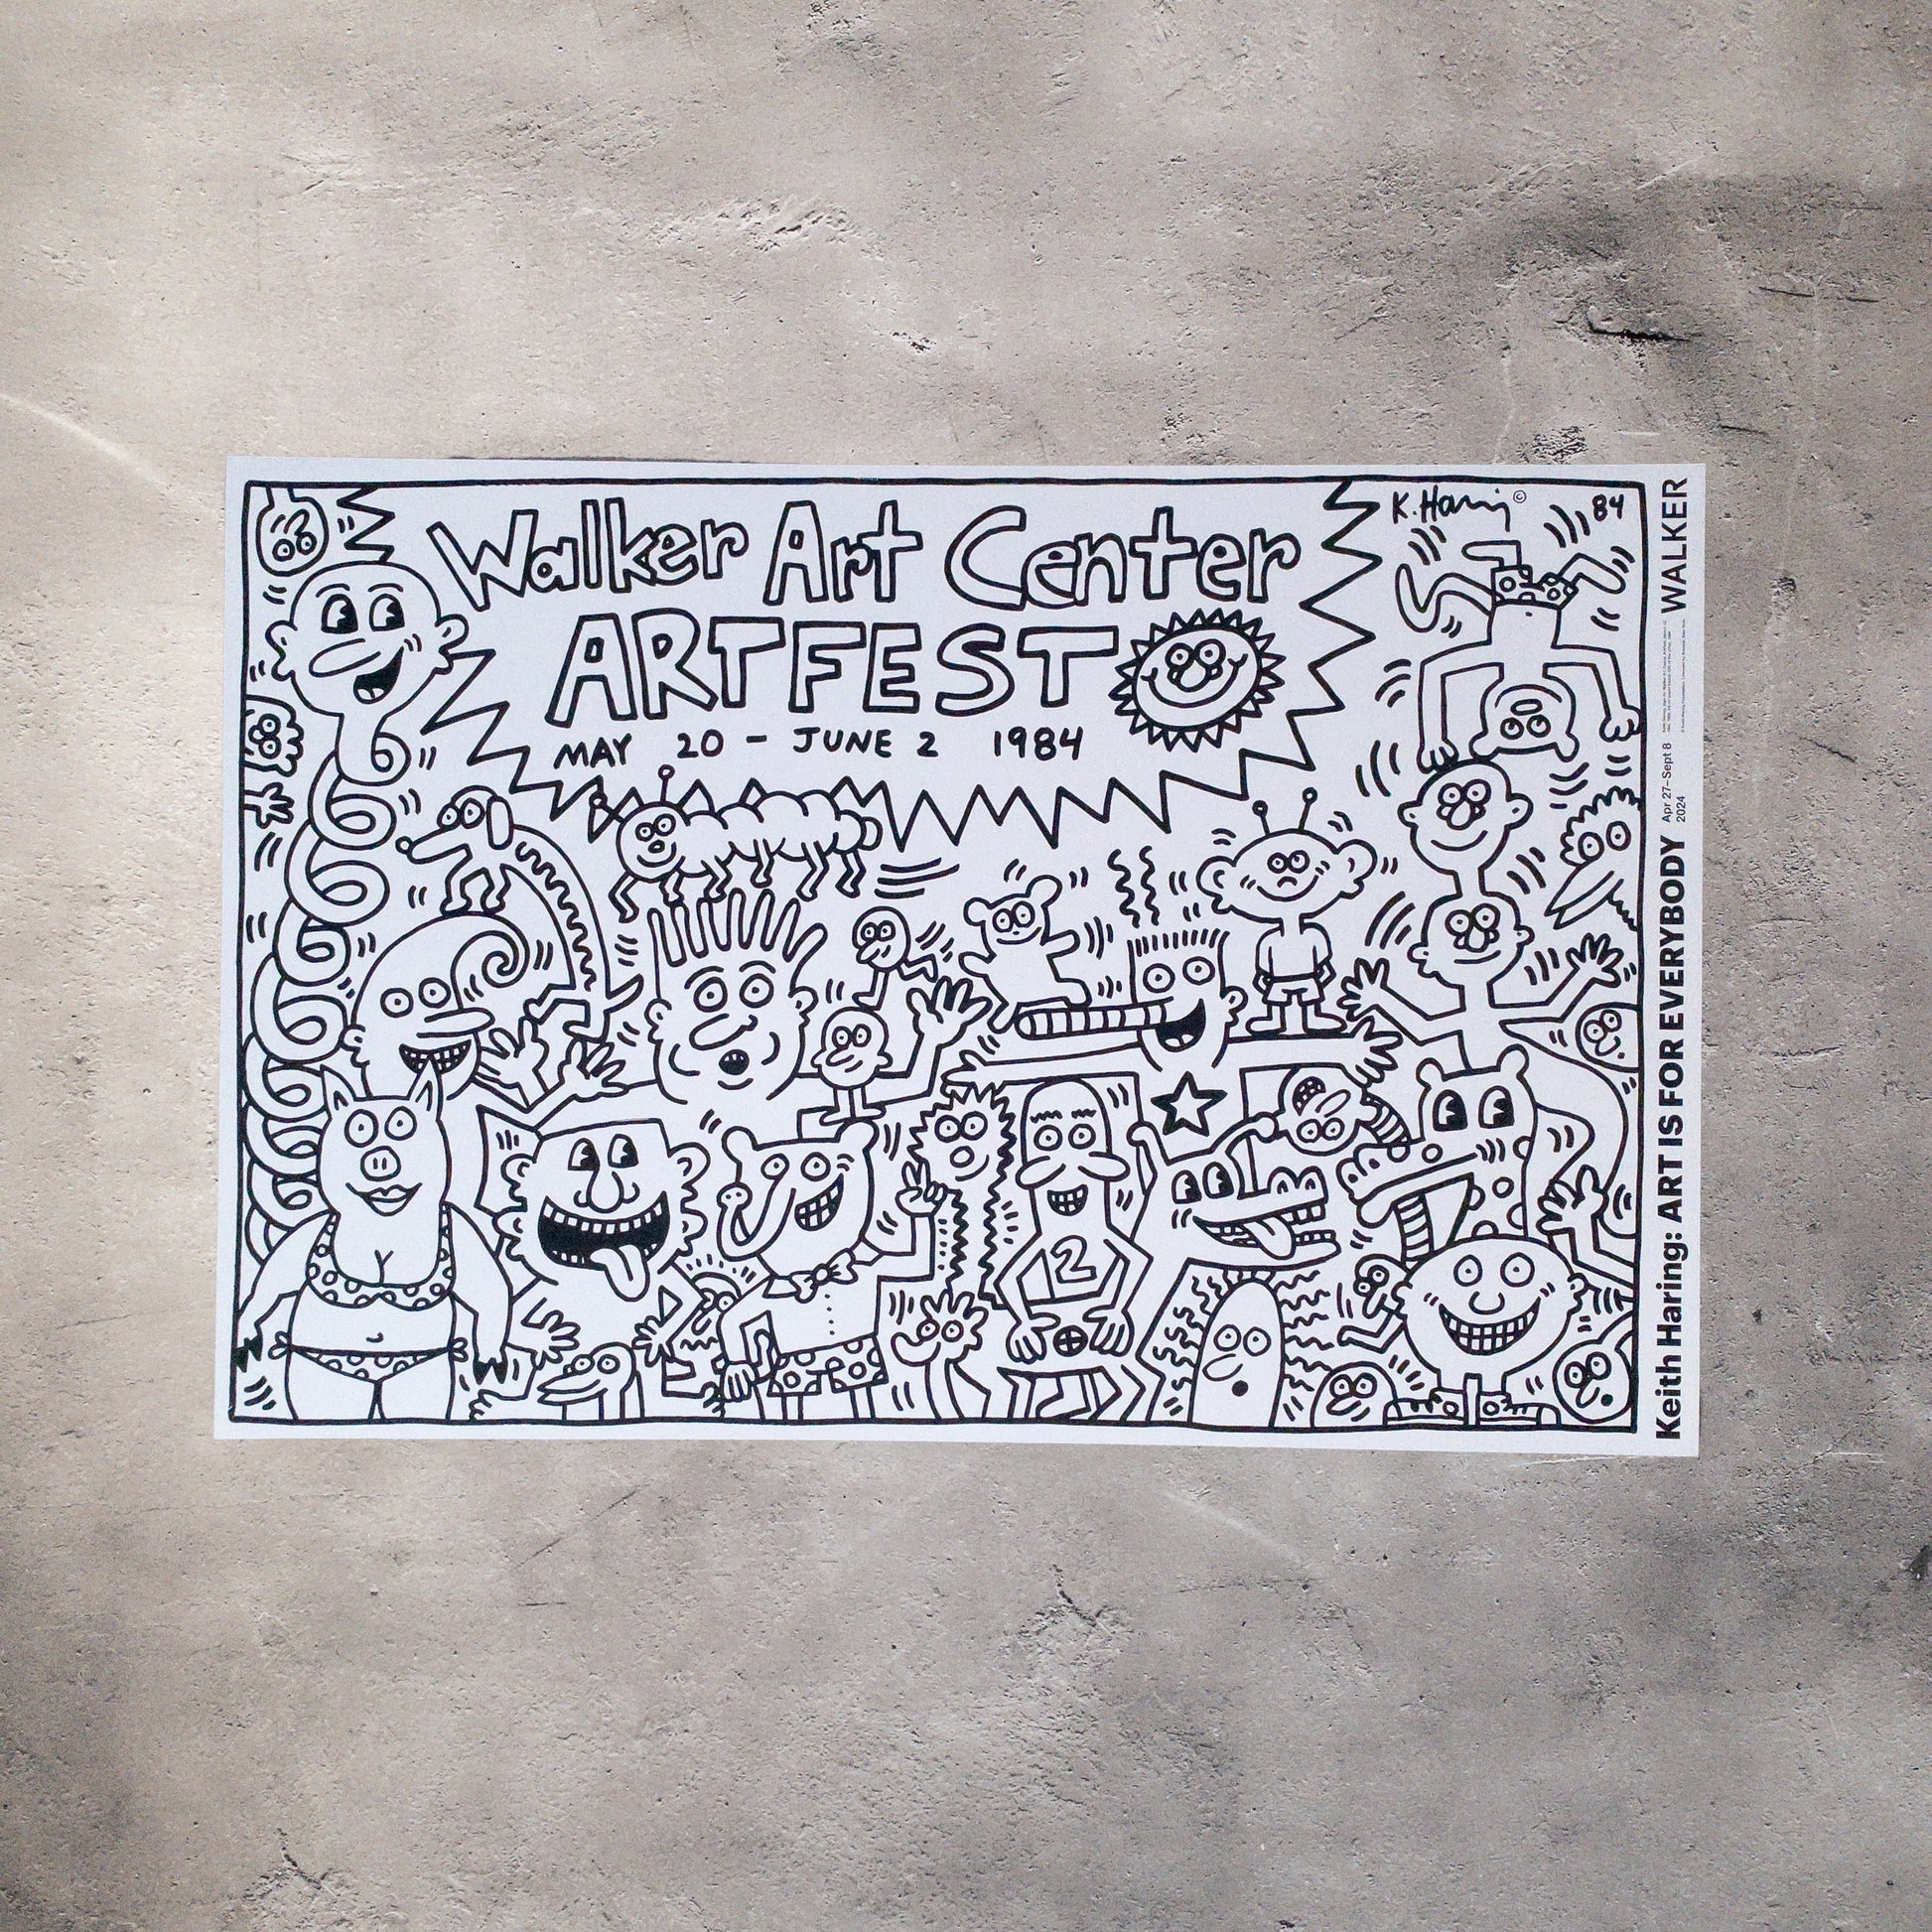 Walker Art Center
ARTFEST
MAY 20 - JUNE 2 1984
K. Haring ©
84
2
Keith Haring: ART IS FOR EVERYBODY
Apr 27–Sept 8
2024
WALKER